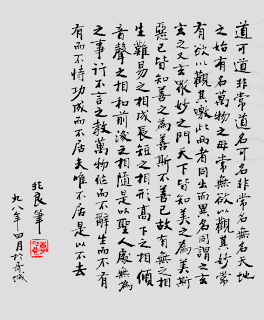 道可道非常道名可名非常名無名天地
之始有名萬物之母常無欲以觀其妙常
有欲以觀其徼此兩者同出而異名同謂之玄
玄之又玄衆妙之門天下皆知美之為美斯
惡已皆知善之為善斯不善已故有無之相
生難易之相成長短之相形高下之相傾
音聲之相和前後之相隨是以聖人處無為
之事行不言之教萬物作而不辭生而不有
有而不恃功成而不居夫唯不居是以不去
良筆
九八年四月於